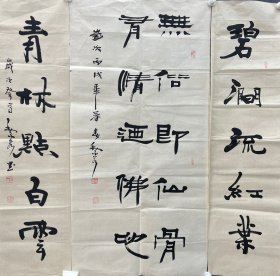 碧澗流紅葉
無俗即仙骨
有情迺佛心
歲次丙戌
青林點白雲
歲次